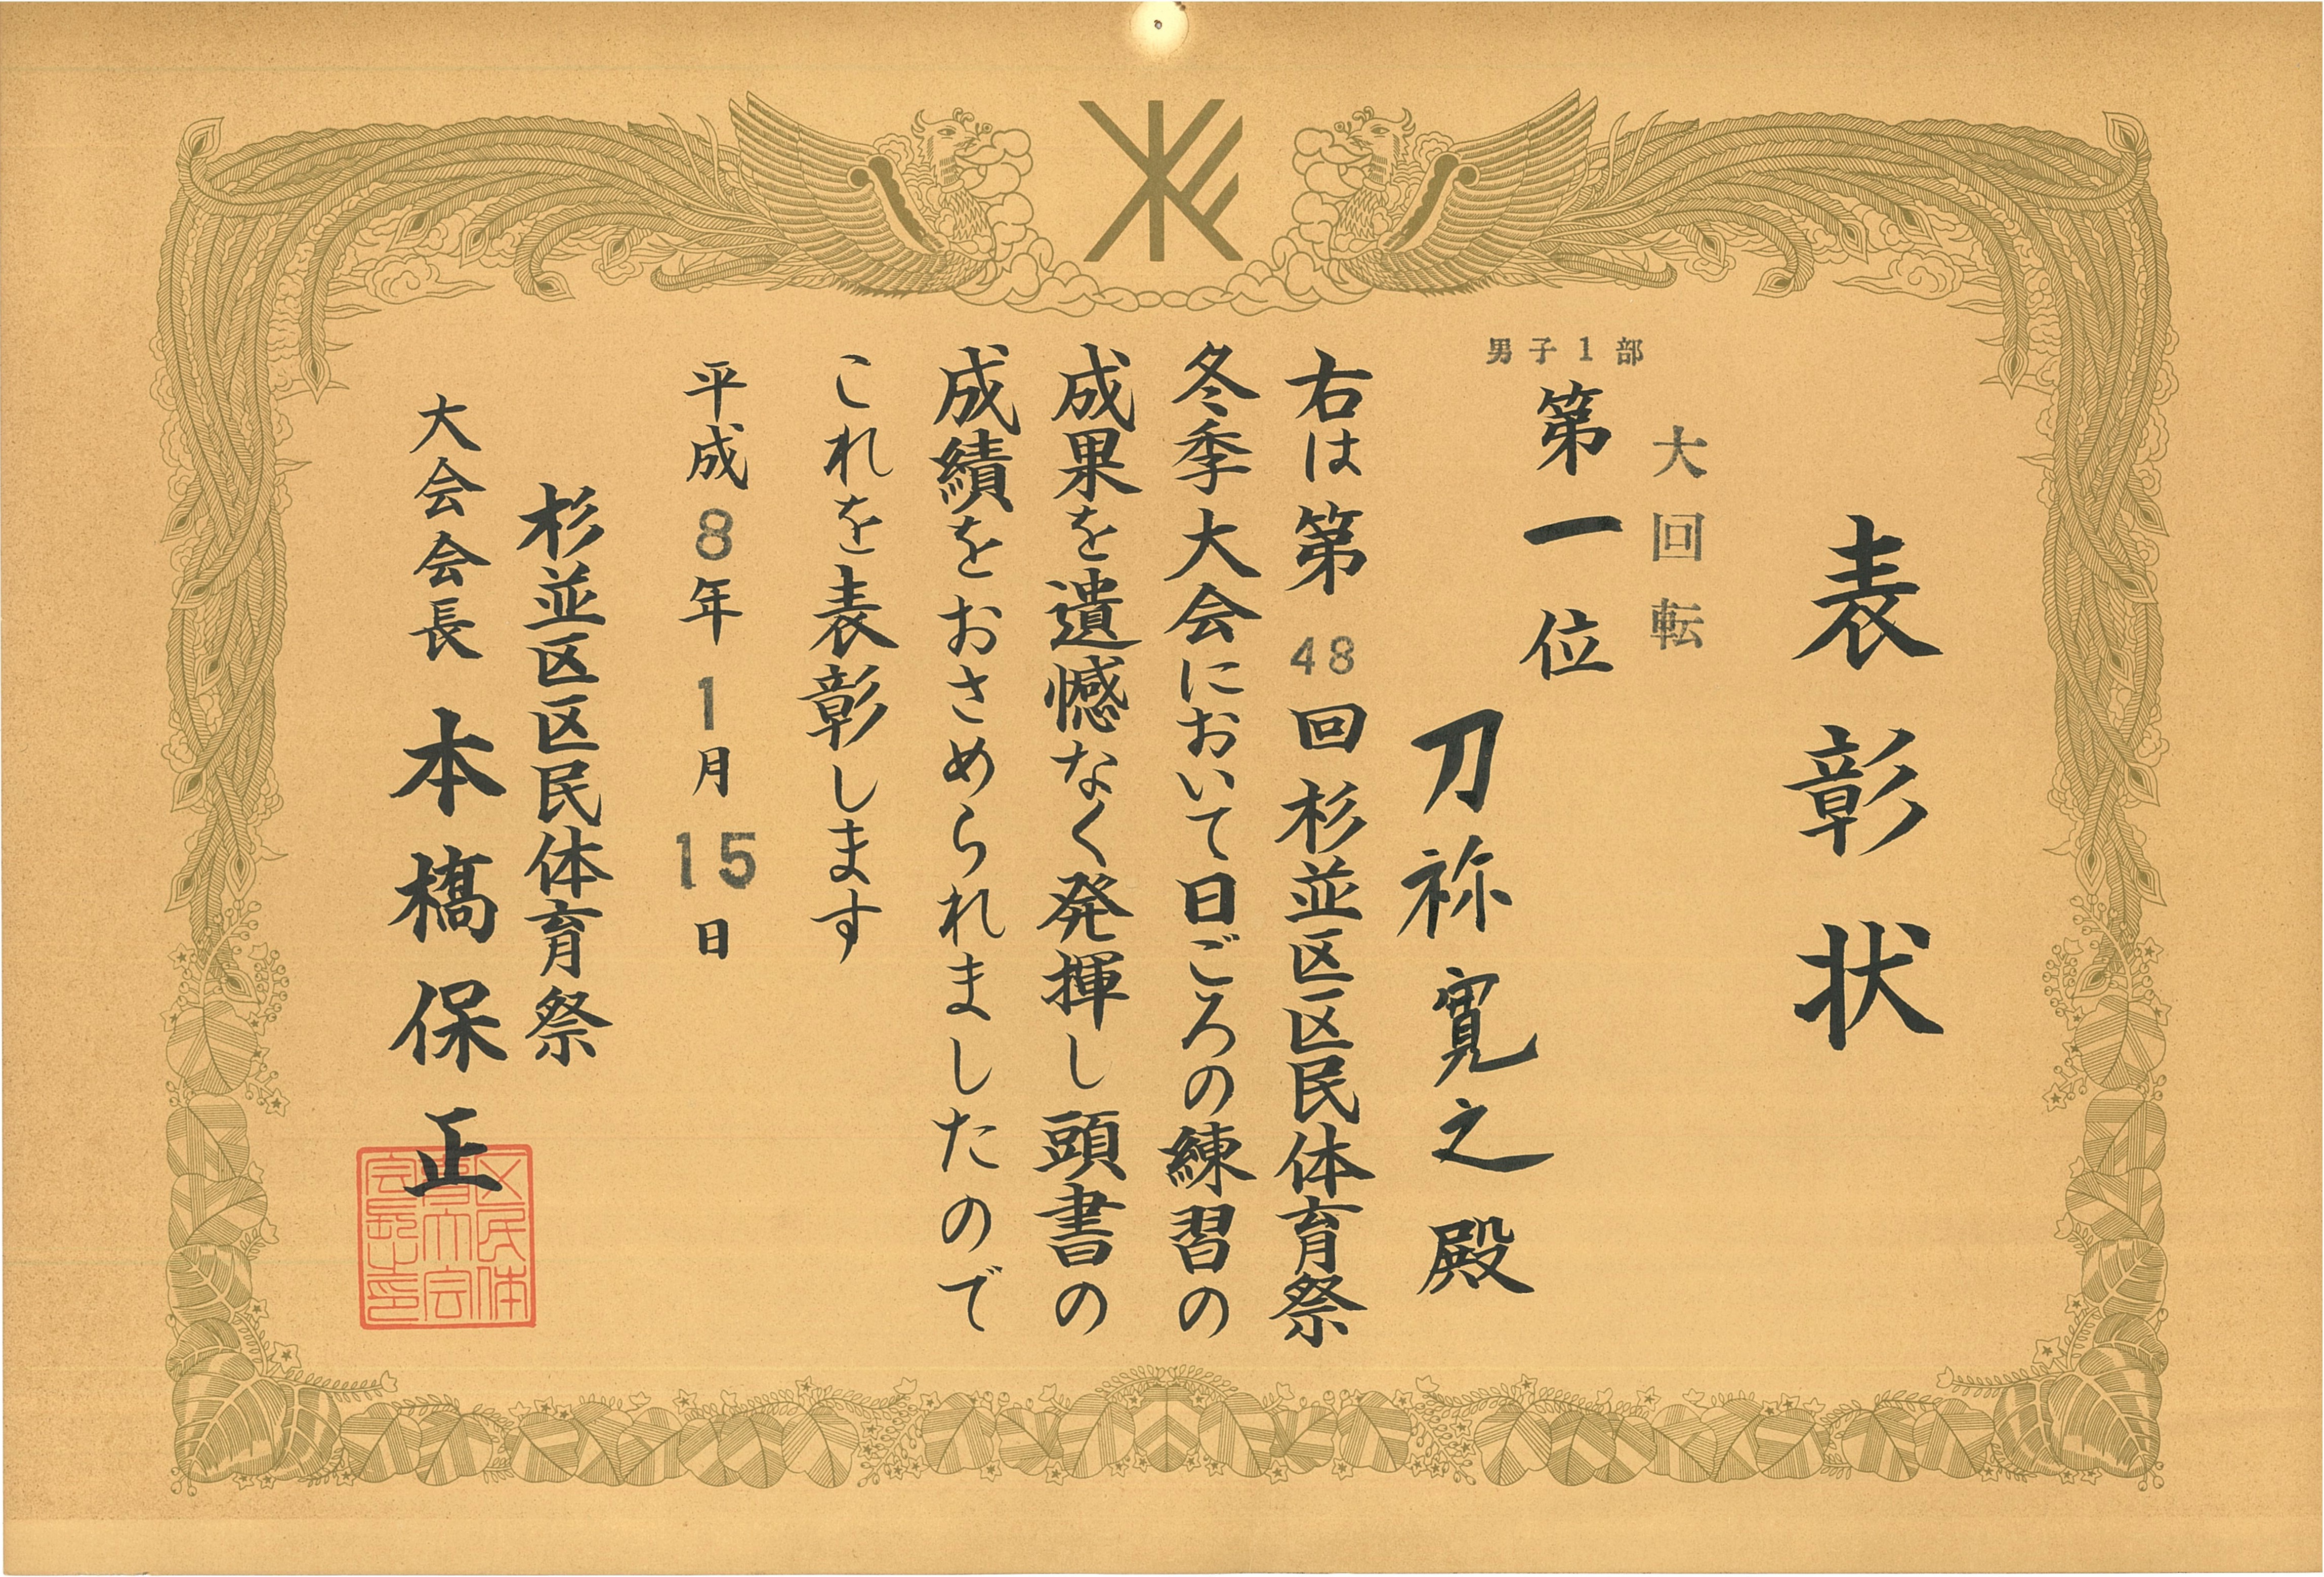 表彰状
大回転
男子1部
第一位
刀祢寛之殿
右は第48回杉並区区民体育祭
冬季大会において日ごろの練習の
成果を遺憾なく発揮し頭書の
成績をおさめられましたので
これを表彰します
平成8年1月15日
杉並区区民体育祭
大会会長 本橋保正
区民体
育大会
会長之印